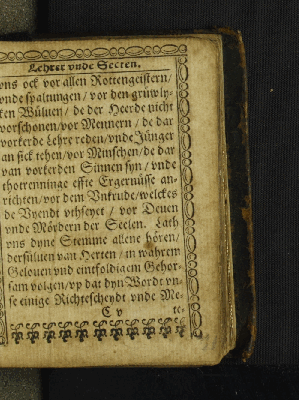 Lehrer vnde Secten.
vns ock vor allen Rottengeistern/
vnde spaltungen/ vor den grüwly-
ken Wüluen/ de der Heerde nicht
vorschonen/ vor Mennern/ de dar
vorkerde Lehre reden/ vnde Jünger
an sick tehen/ vor Minschen/ de dar
van vorkerden Sinnen syn/ vnde
thotrenninge effte Ergernüsse an-
richten/ vor dem Vntrude/ welckes
de Vyendt vthseyet/ vor Deuen
vnde Mördern der Seelen. Lath
vns dyne Stemme allene hören/
dersüluen van Herten/ in wahrem
Gelouen vnd eintfoldigem Gehor-
sam volgen/ vp dat dyn Wordt vn-
se einige Richtescheydt vnde Me-
C v
te-